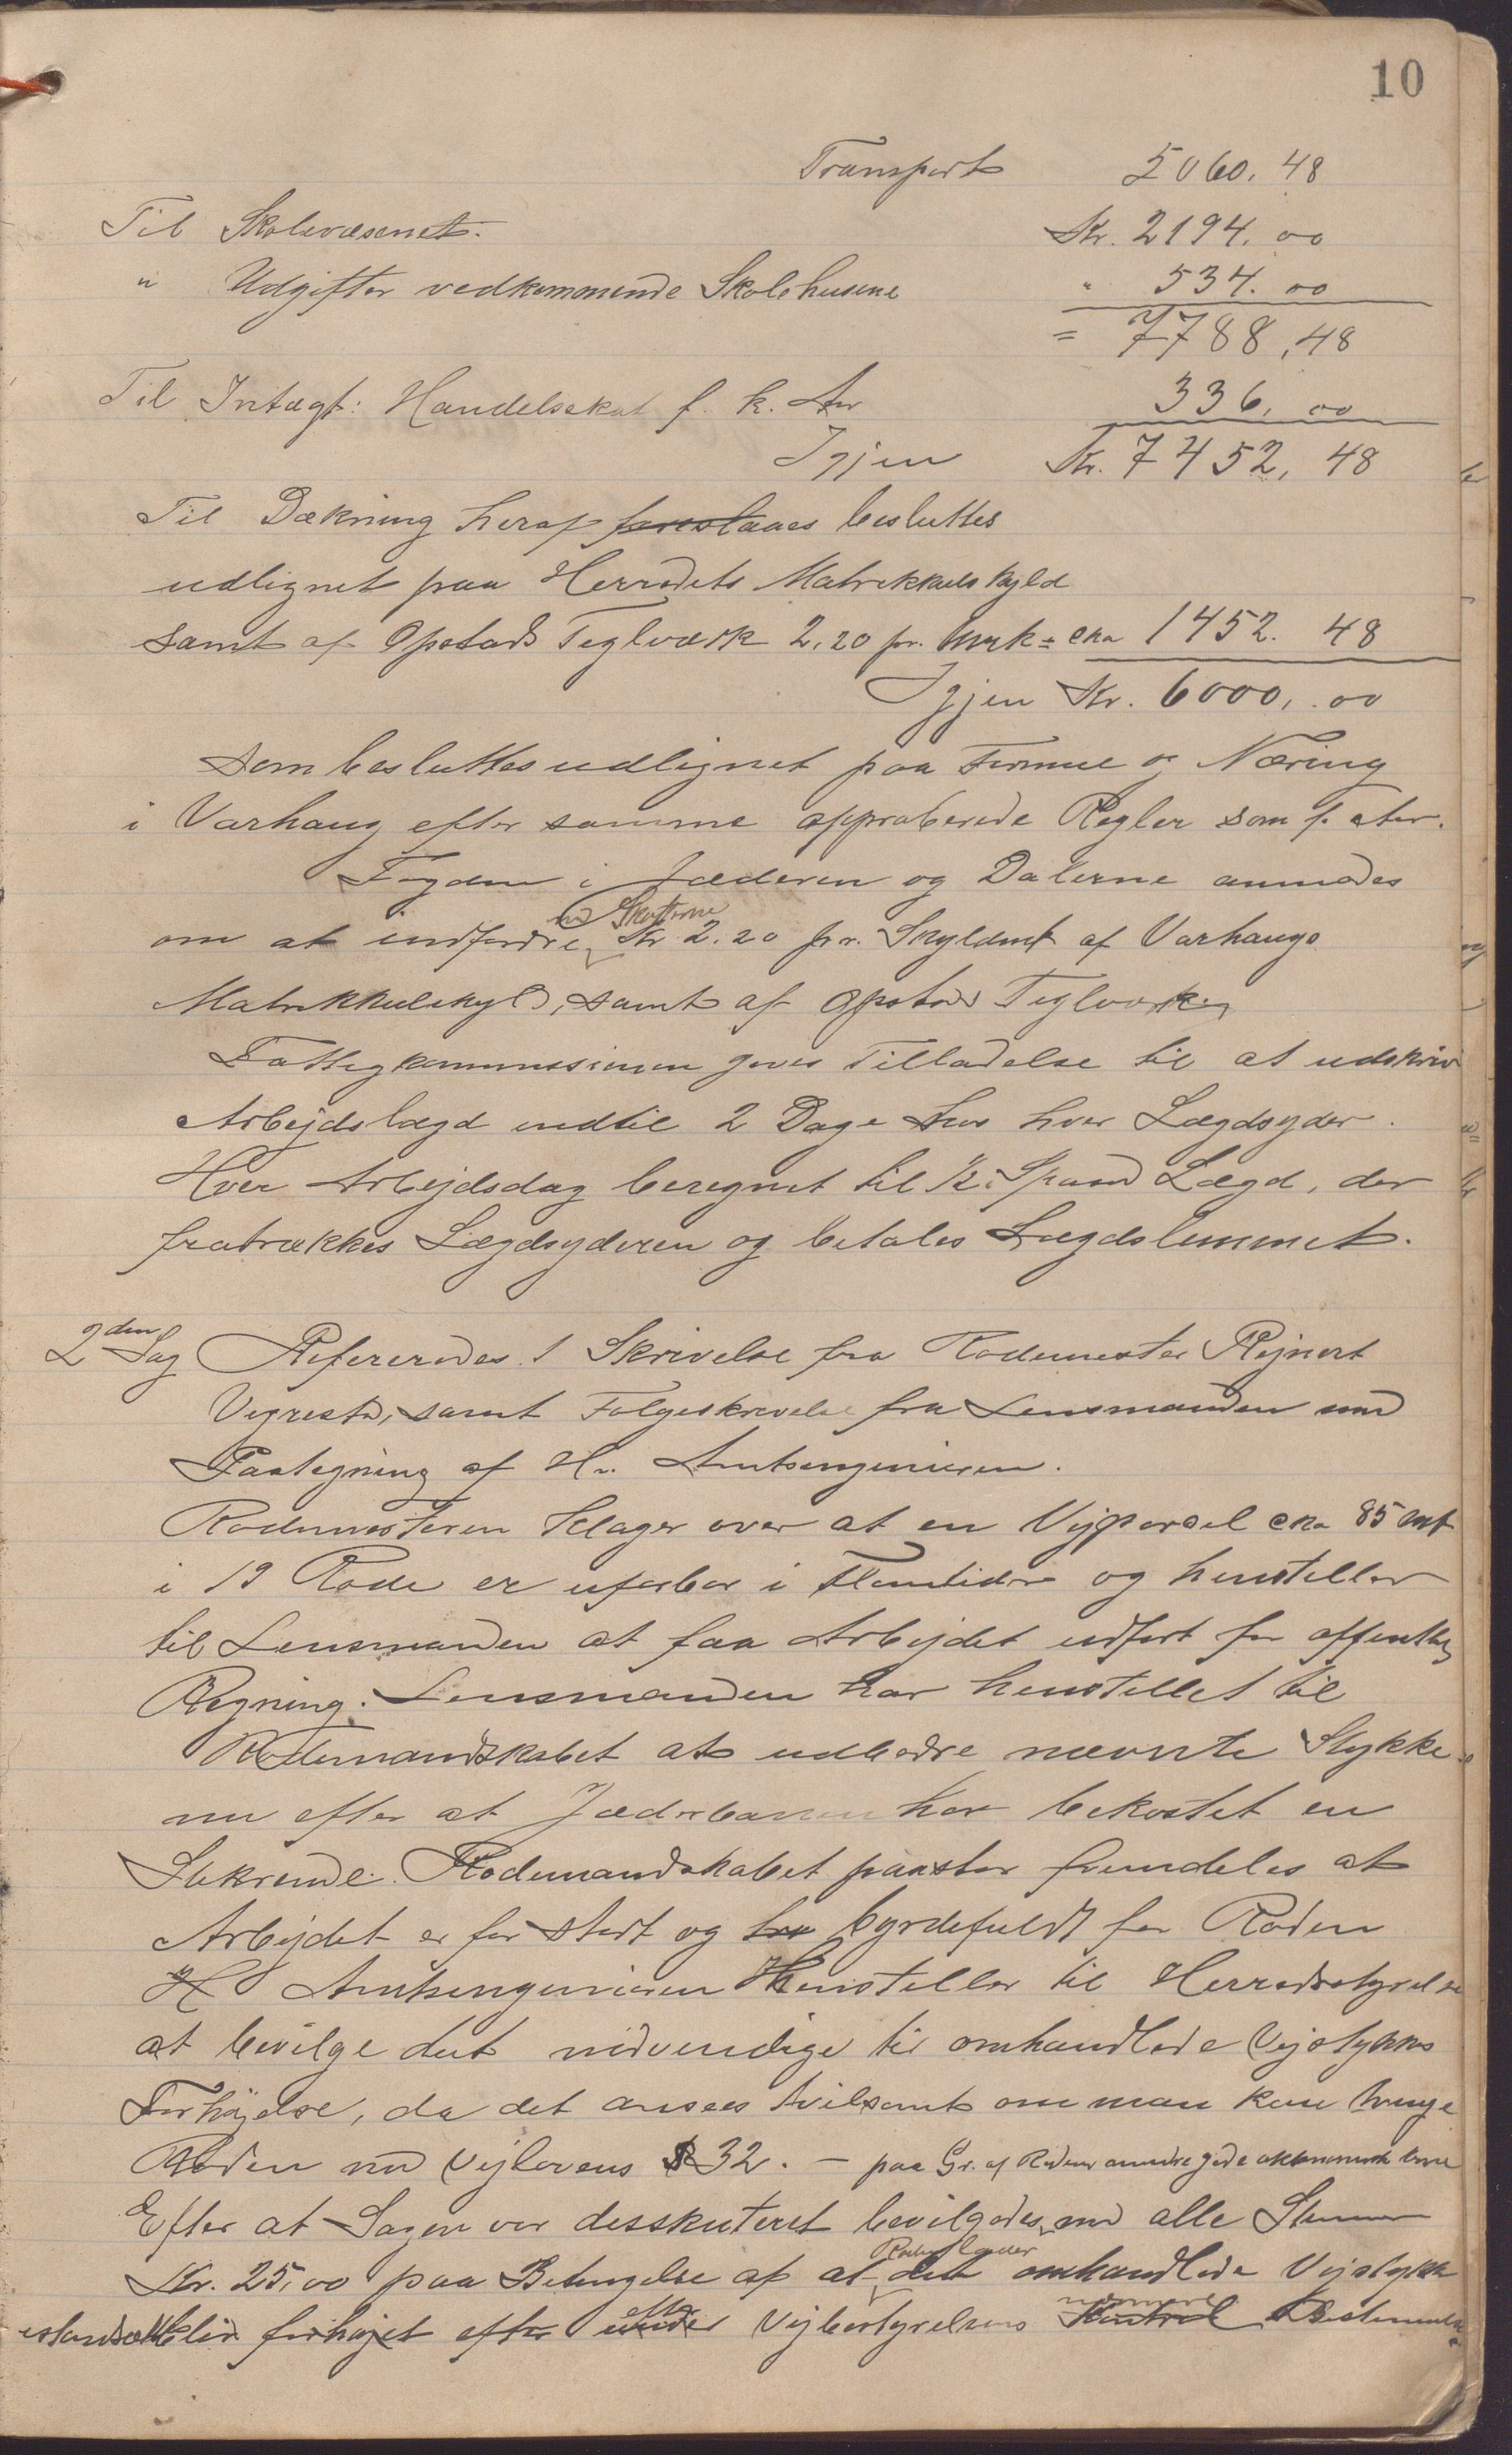 10
Transport 5060,48
Til Skolevæsenet. Kr. 2194,00
" Udgifter vedkommende Skolehusene " 534.00
= 7788,48
Til Intægt: Handelsskat f. k. Aar 336,00
Igjen Kr. 7452,48
Til Dækning heraf foreslaaes besluttes
udlignet paa Herredets Matrikkulskyld
samt af Opstad Teglværk 2,20 pr. Mrk = cka 1452.48
Igjen Kr. 6000,00
som besluttes udlignet paa Formue og Næring
i Varhaug efter samme approberede Regler som f. Aar.
Fogden i Jæderen og Dalerne anmodes
om at indfordre med Skatterne Kr 2.20 pr. Skyldmk af Varhaugs
Matrikkulskyld, samt af Opstad Teglværk
Fattigkommissionen gives Tilladelse til at udskriv
Arbejdslægd indtil 2 Dage hos hver Lægdsyder.
Hver Arbejdsdag beregnet til 1/2 Spand Lægd, der
fratrækkes Lægdsyderen og betales Lægdslemmet.
2den Sag Refereredes 1 Skrivelse fra Rodemester Rejnert
Vigrestad, samt Følgeskrivelse fra Lensmanden med
Paategning af Hr. Amtsingeniøren.
Rodemesteren klager over at en Vejparsel cka 85 mt
i 19 Rode er ufarbar i Flomtider og henstiller
til Lensmanden at faa Arbejdet udført for offentlig
Regning. Lensmanden har henstillet til
Rodemandskabet at udbedre nævnte Stykke
nu efter at Jæderbanen har bekostet en
Stikrende. Rodemandskabet paastaar fremdeles at
Arbejdet er for stort og byrdefuldt for Roden
Hr Amtsingeniøren henstiller til Herredsstyrelse
at bevilge det nødvendige til omhandlede Vejstykkes
Forhøjelse, da det ansees tvilsomt om man kan tvinge
Roden med Vejlovens § 32. — paa Gr. af Rodens mindre gode økkonomiske Evne
Efter at Sagen var desskuteret bevilgedes med alle Stemmer
Kr. 25,00 paa Betingelse af at det omhandlede Vejstykke
istandsættes blir forhøjet efter under efter Vejbestyrelsens nærmere Kontrol Bestemmelse